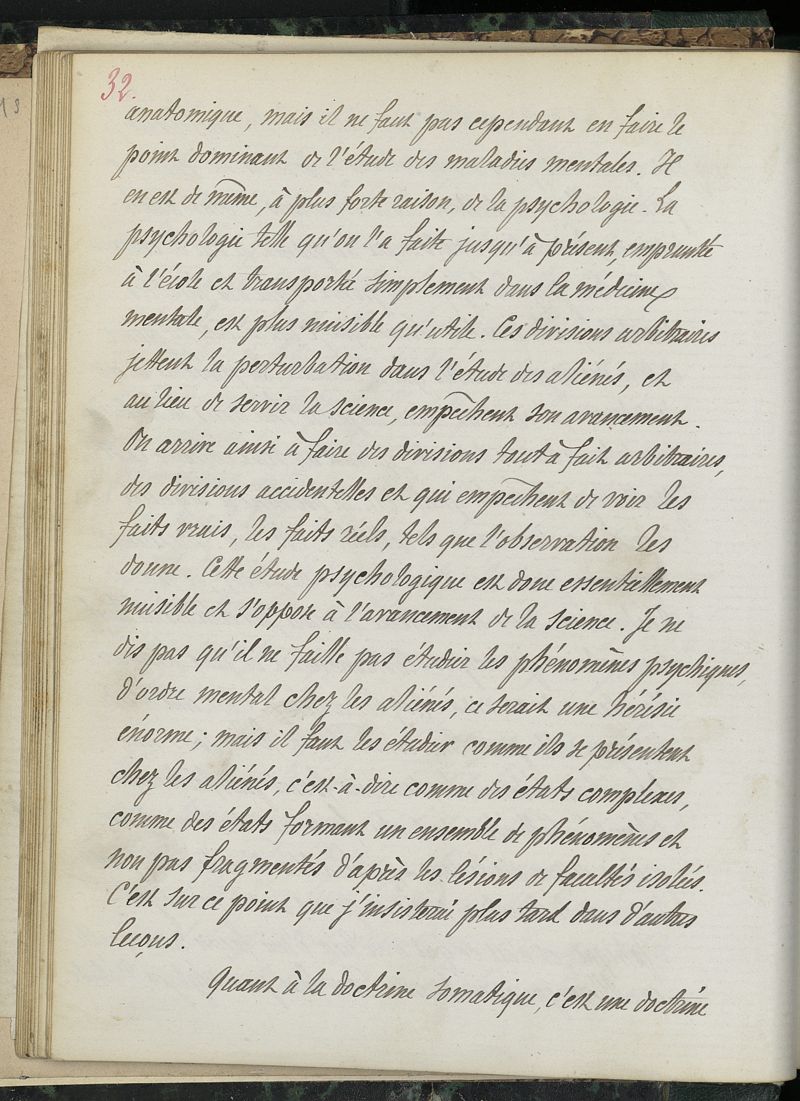 32.
anatomique, mais il ne faut pas cependant en faire le
point dominant de l'étude des maladies mentales. Il
en est de même, à plus forte raison, de la psychologie. La
psychologie telle qu'on l'a faite jusqu'à présent, empruntée
à l'école et transportée simplement dans la médecine
mentale, est plus nuisible qu'utile. Ces divisions arbitraires
jettent la perturbation dans l'étude des aliénés, et
au lieu de servir la science, empêchent son avancement.
On arrive ainsi à faire des divisions tout à fait arbitraires,
des divisions accidentelles et qui empêchent de voir les
faits vrais, les faits réels, tels que l'observation les
donne. Cette étude psychologique est donc essentiellement
nuisible et s'oppose à l'avancement de la science. Je ne
dis pas qu'il ne faille pas étudier les phénomènes psychiques,
d'ordre mental chez les aliénés, ce serait une hérésie
énorme; mais il faut les étudier comme ils se présentent
chez les aliénés, c'est-à-dire comme des états complexes,
comme des états formant un ensemble de phénomènes et
non pas fragmentés d'après les lésions de facultés isolées.
C'est sur ce point que j'insisterai plus tard dans d'autres
leçons.
Quant à la doctrine somatique, c'est une doctrine